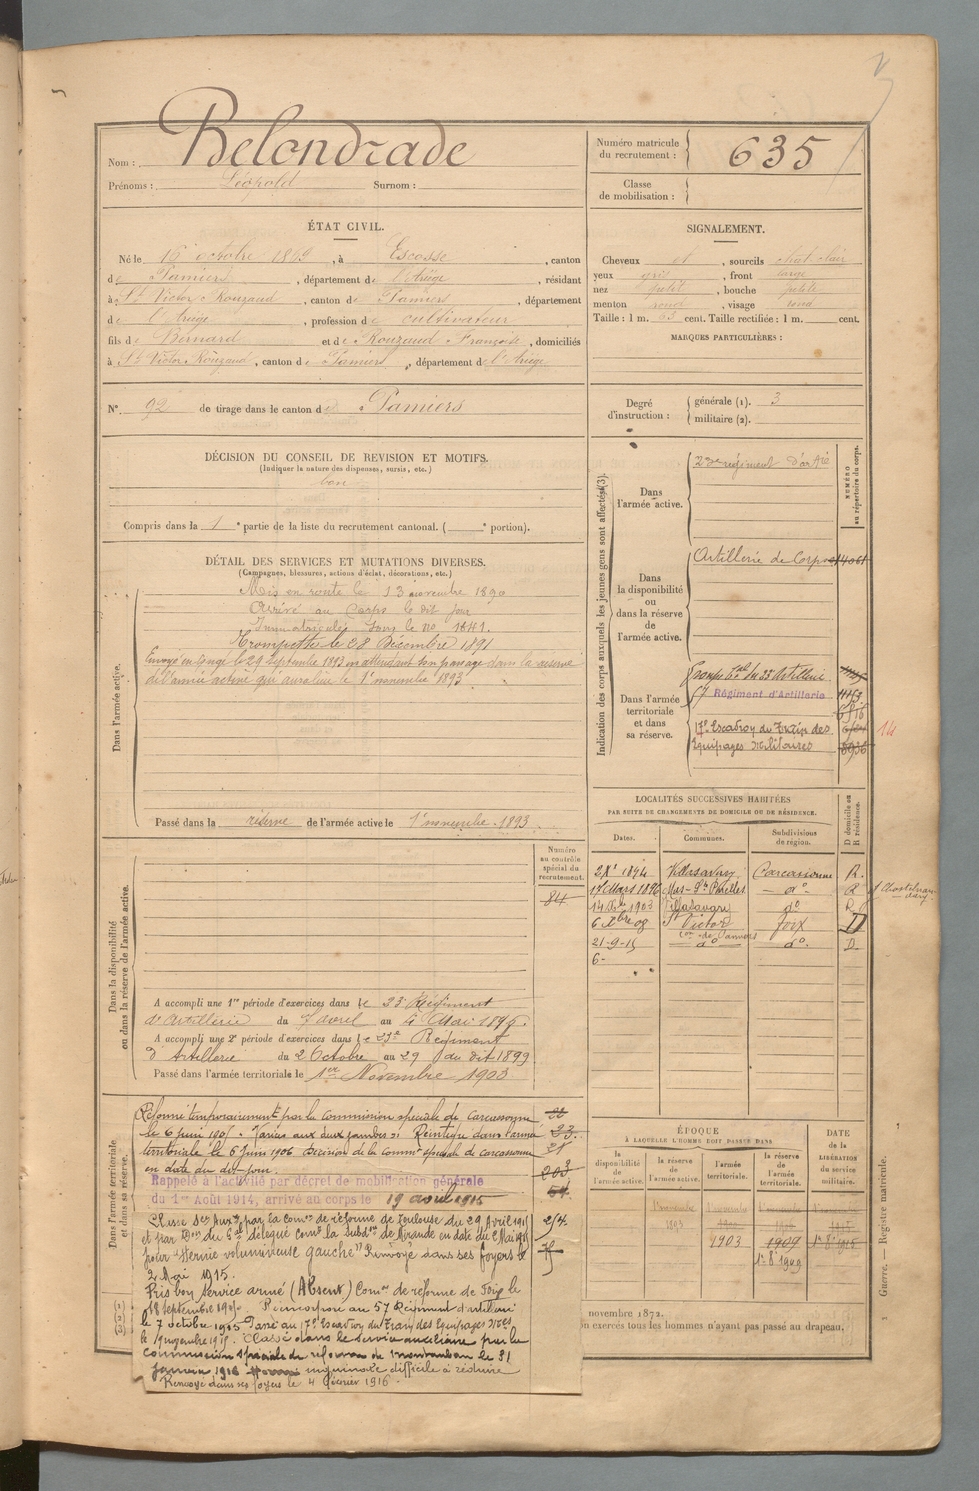 Nom : Belondrade
Prénoms : Léopold Surnom :
Numéro matricule du recrutement : 635
Classe de mobilisation :
ÉTAT CIVIL.
Né le 16 octobre 1869, à Escosse, canton
de Pamiers, département de l'Ariège, résidant
à St Victor Rouzaud, canton de Pamiers, département
de l'Ariège, profession de cultivateur
fils de Bernard et de Rouzaud Françoise, domiciliés
à St Victor Rouzaud, canton de Pamiers, département de l'Ariège
N° 92 de tirage dans le canton de Pamiers
SIGNALEMENT.
Cheveux et, sourcils chat clair
yeux gris, front large
nez petit, bouche petite
menton rond, visage rond
Taille : 1 m. 63 cent. Taille rectifiée : 1 m. cent.
MARQUES PARTICULIÈRES :
Degré d'instruction : générale (1). 3
militaire (2).
DÉCISION DU CONSEIL DE REVISION ET MOTIFS.
(Indiquer la nature des dispenses, sursis, etc.)
bon
Compris dans la 1e partie de la liste du recrutement cantonal. ( e portion).
DÉTAIL DES SERVICES ET MUTATIONS DIVERSES.
(Campagnes, blessures, actions d'éclat, décorations, etc.)
Dans l'armée active.
Mis en route le 13 novembre 1890
Arrivé au Corps le dit jour
Immatriculé sous le no 1841.
Trompette le 28 Décembre 1891
Envoyé en congé le 29 septembre 1893 en attendant son passage dans la réserve
de l'armée active qui aura lieu le 1er novembre 1893
Passé dans la réserve de l'armée active le 1er novembre 1893
Indication des corps auxquels les jeunes gens sont affectés (3).
NUMÉRO au répertoire du corps.
Dans l'armée active.
23e régiment d'artie
Dans la disponibilité ou dans la réserve de l'armée active.
Artillerie de Corps
Dans l'armée territoriale et dans sa réserve.
57 Régiment d'Artillerie
17e Escadron du Train des
Equipages Militaires
14
LOCALITÉS SUCCESSIVES HABITÉES
PAR SUITE DE CHANGEMENTS DE DOMICILE OU DE RÉSIDENCE.
Dates. Communes. Subdivisions de région. D domicile ou R résidence.
1894 Villasavary Carcassonne R.
17 Mars 1896 Mas-Stes Puelles do R
1903 Villasavary do R
6 Xbre 08 St Victor Foix D
con de Pamiers
21-9-15 do do D
6-
Dans la disponibilité ou dans la réserve de l'armée active.
Numéro au contrôle spécial du recrutement.
84
A accompli une 1re période d'exercices dans le 23e Régiment
d'Artillerie du 7 avril au 4 Mai 1896.
A accompli une 2e période d'exercices dans le 23e Régiment
d'Artillerie du 2 Octobre au 29 du dit 1899
Passé dans l'armée territoriale le 1er Novembre 1903
Dans l'armée territoriale et dans sa réserve.
Réformé temporairement par la commission spéciale de Carcassonne
le 6 juin 1905. Varices aux deux jambes. Réintégré dans l'armée
territoriale le 6 Juin 1906 Décision de la Common spéciale de Carcassonne
en date du dit jour.
Rappelé à l'activité par décret de mobilisation générale
du 1er Août 1914, arrivé au corps le 19 avril 1915
Classé Sces Auxres par la Comon de réforme de Toulouse du 29 Avril 1915
et par Don du Gal délégué Comt la Subdon de Mirande en date du 2 Mai 1915
pour "Hernie volumineuse gauche" Renvoyé dans ses foyers le
2 Mai 1915.
Pris bon Service armé (Absent) Comon de réforme de Foix le
18 septembre 1915. Réincorporé au 57 Régiment d'artillerie
le 7 octobre 1915. Passé au 17e Escadron du Train des Equipages Mres
le 1 novembre 1915. Classé dans le service auxiliaire par la
commission spéciale de réforme de Montauban le 31
janvier 1916 inguinale difficile à réduire
Renvoyé dans ses foyers le 4 février 1916.
ÉPOQUE
À LAQUELLE L'HOMME DOIT PASSER DANS
la disponibilité de l'armée active. la réserve de l'armée active. l'armée territoriale. la réserve de l'armée territoriale.
DATE de la LIBÉRATION du service militaire.
1er novembre 1893
1903 1909
1er 8bre 1909
novembre 1872.
n exercés tous les hommes n'ayant pas passé au drapeau.
Guerre. — Registre matricule.